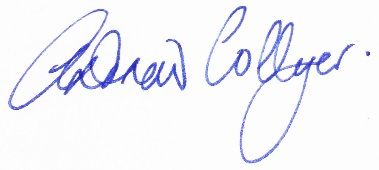 Andrew Collyer.